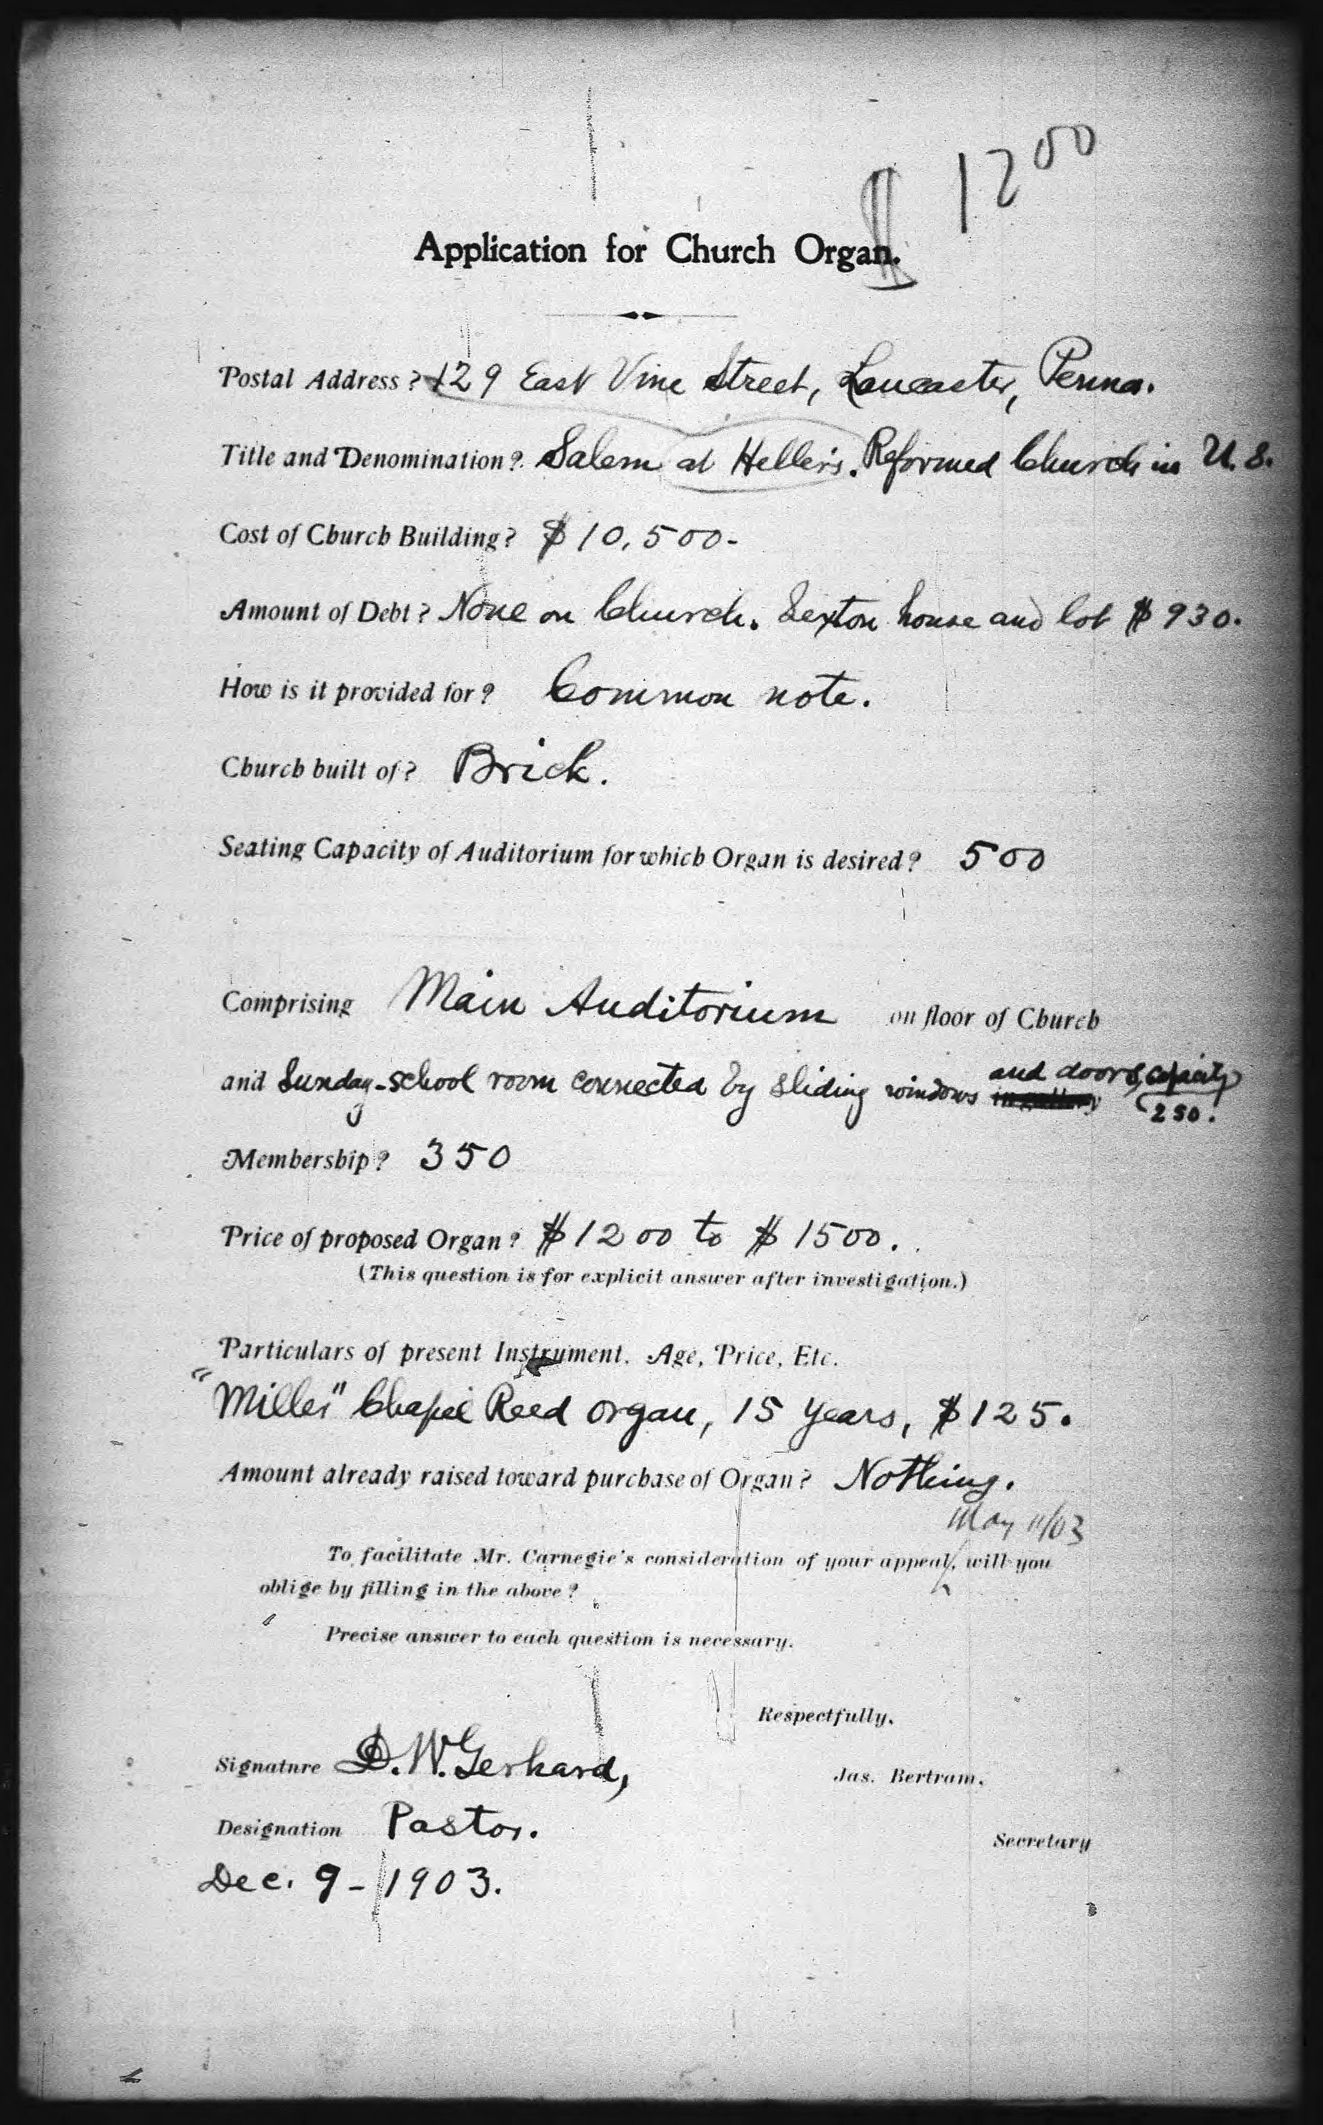 $ 1200
Application for Church Organ.
Postal Address? 129 East Vine Street, Lancaster, Penna.
Title and Denomination? Salem at Heller's. Reformed Church in U. S.
Cost of Church Building? $10,500-
Amount of Debt? None on Church. Sexton house and lot $930.
How is it provided for? Common note.
Church built of? Brick.
Seating Capacity of Auditorium for which Organ is desired? 500
Comprising Main Auditorium on floor of Church
and Sunday-school room connected by sliding windows and doors, capacity 250.
Membership? 350
Price of proposed Organ? $1200 to $1500.
(This question is for explicit answer after investigation.)
Particulars of present Instrument. Age, Price, Etc.
"Miller" Chapel Reed organ, 15 years, $125.
Amount already raised toward purchase of Organ? Nothing.
May 11/03
To facilitate Mr. Carnegie's consideration of your appeal, will you
oblige by filling in the above?
Precise answer to each question is necessary.
Respectfully,
Signature D. W. Gerhard,
Jas. Bertram,
Designation Pastor.
Secretary
Dec. 9-1903.